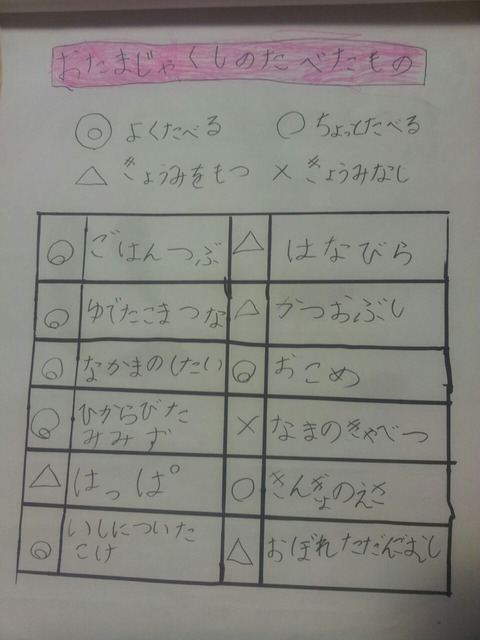 おたまじゃくしのたべたもの
◎ よくたべる ○ ちょっとたべる
△ きょうみをもつ × きょうみなし
◎ ごはんつぶ △ はなびら
◎ ゆでたこまつな △ かつおぶし
◎ なかまのしたい ◎ おこめ
◎ ひからびた
みみず × なまのきゃべつ
△ はっぱ ○ きんぎょのえさ
◎ いしについた
こけ △ おぼれただんごむし